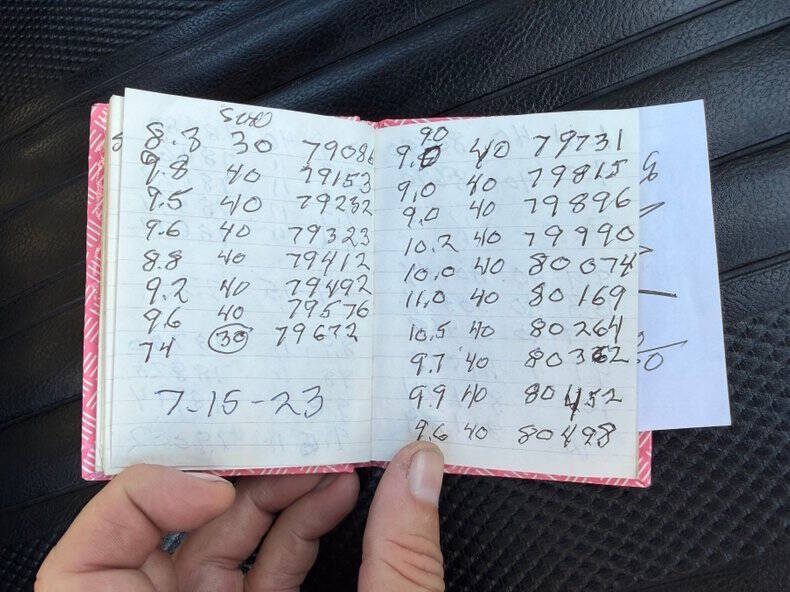 8.8 30 79086
9.8 40 79153
9.5 40 79232
9.6 40 79323
8.8 40 79412
9.2 40 79492
9.6 40 79576
74 30 79672
7-15-23
90
9.0 40 79731
9.0 40 79815
9.0 40 79896
10.2 40 79990
10.0 40 80074
11.0 40 80169
10.5 40 80264
9.7 40 80362
9.9 40 80452
9.6 40 80498